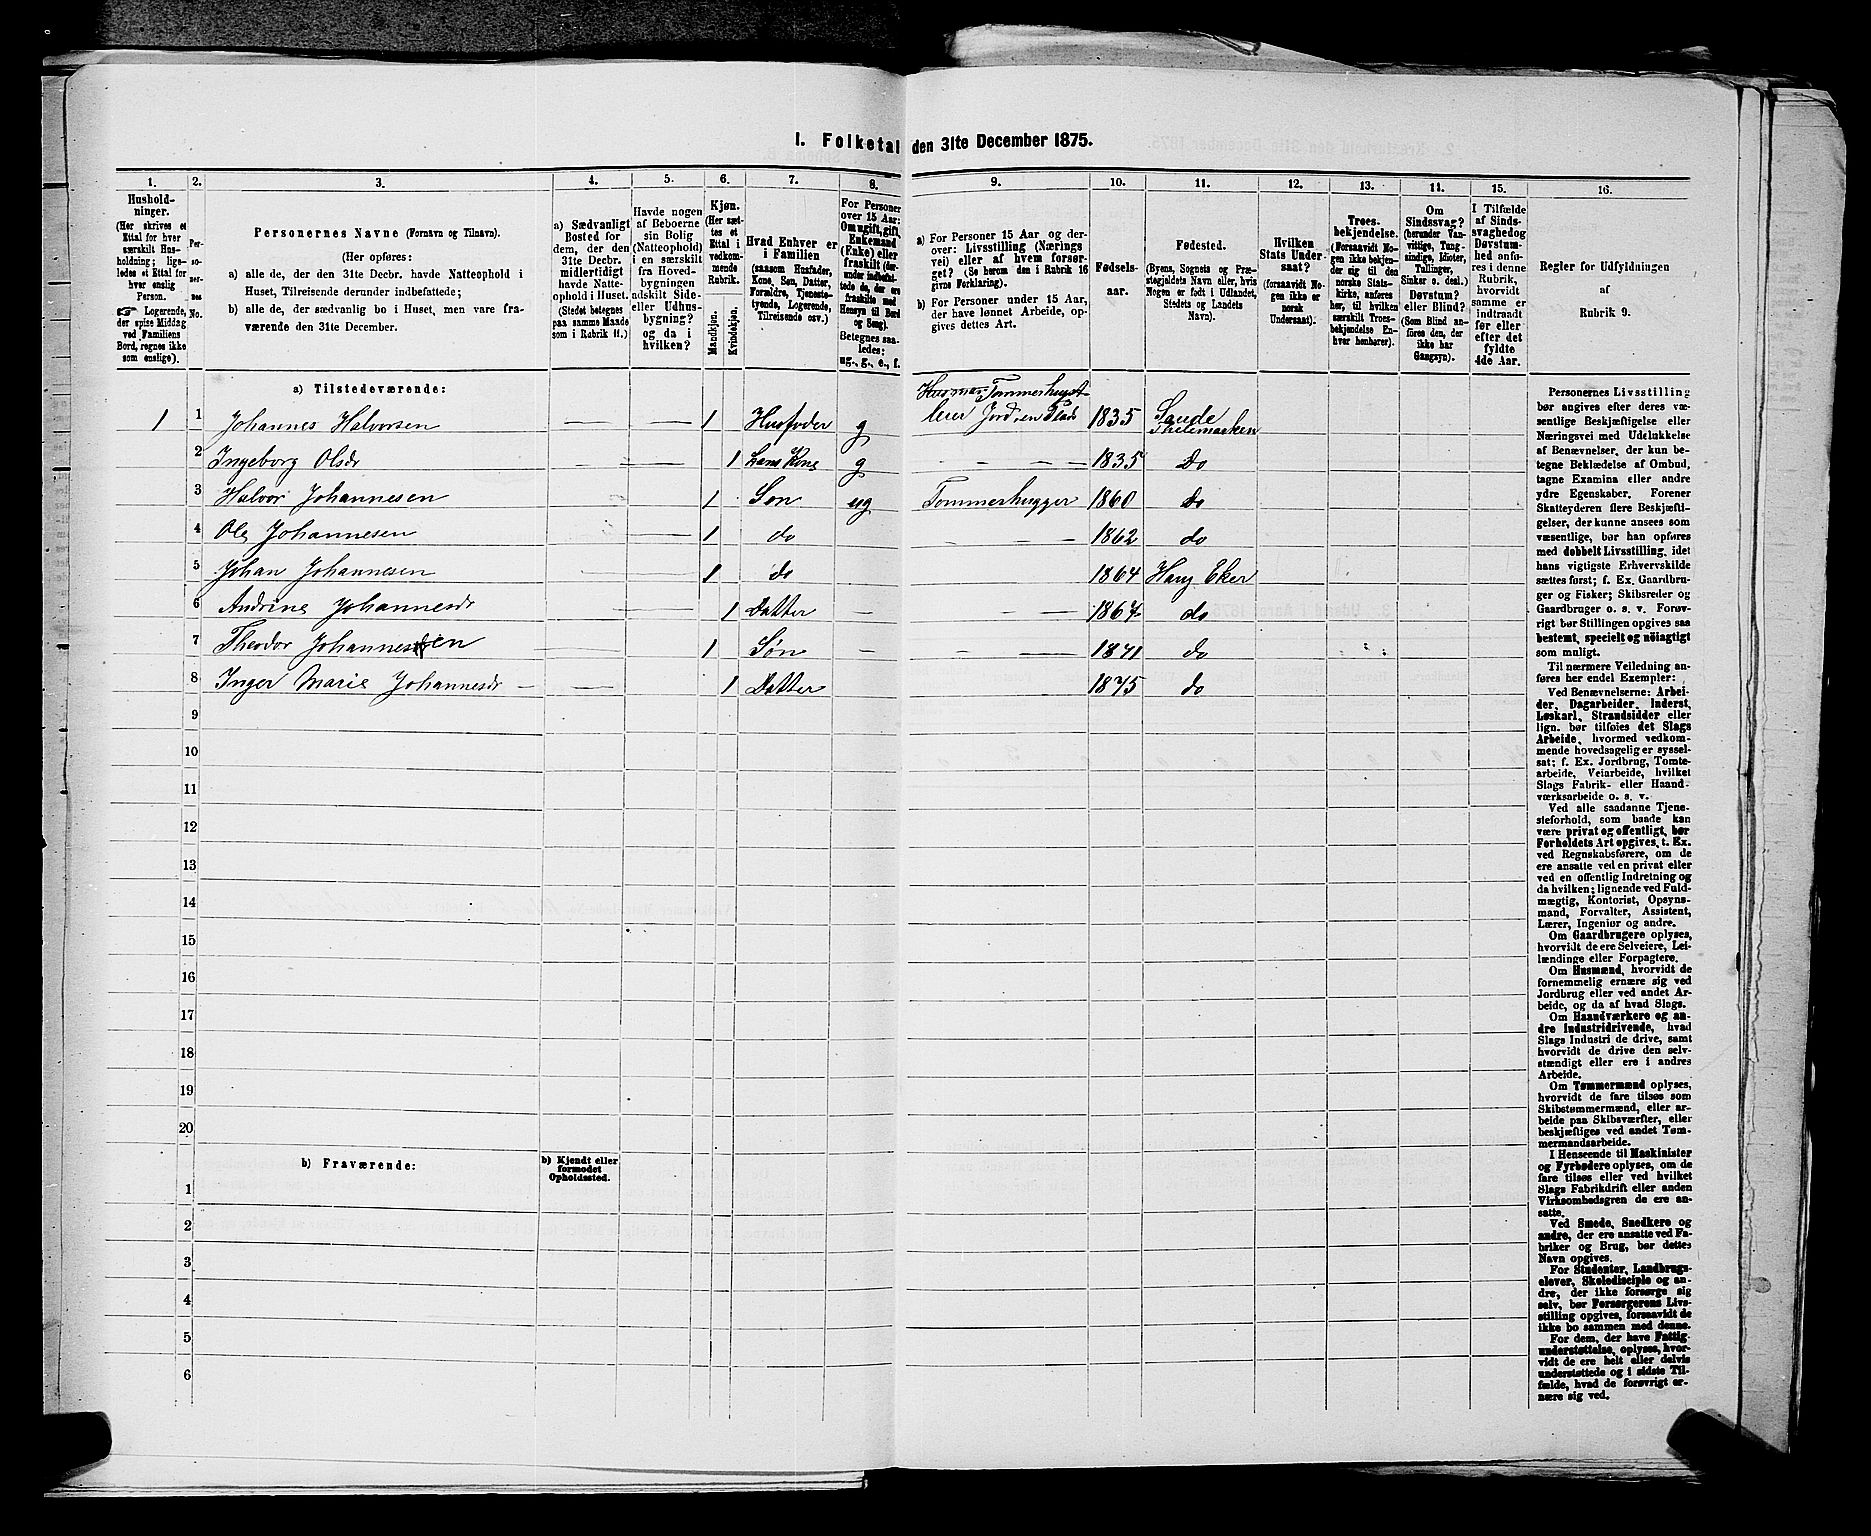 I. Folketal den 31te December 1875.
1. 2. 3. 4. 5. 6. 7. 8. 9. 10. 11. 12. 13. 14. 15. 16.
Hushold-
ninger.
(Her skrives et
Ettal for hver
særskilt Hus-
holdning; lige-
ledes et Ettal for
hver enslig
Person.
Logerende,
der spise Middag
ved Familiens
Bord, regnes ikke
som enslige).
Per-
so-
ner-
nes
No.
Personernes Navne (Fornavn og Tilnavn).
(Her opføres:
a) alle de, der den 31te Decbr. havde Natteophold i
Huset, Tilreisende derunder indbefattede;
b) alle de, der sædvanlig bo i Huset, men vare fra-
værende den 31te December.
a) Sædvanligt
Bosted for
dem, der den
31te Decbr.
midlertidigt
havde Natte-
ophold i Huset.
(Stedet betegnes
paa samme Maade
som i Rubrik 11.)
Havde nogen
af Beboerne
sin Bolig
(Natteophold)
i en særskilt
fra Hoved-
bygningen
adskilt Side-
eller Udhus-
bygning?
og da i
hvilken?
Kjøn.
(Her sæt-
tes et
Ettal i
vedkom-
mende
Rubrik.
Mandkjøn.
Kvindekjøn.
Hvad Enhver er
i Familien
(saasom Husfader,
Kone, Søn, Datter,
Forældre, Tjeneste-
tyende, Logerende,
Tilreisende osv.)
For Personer
over 15 Aar:
Om ugift, gift,
Enkemand
(Enke) eller
fraskilt (der-
under indbefat-
tede de, der ere
fraskilte med
Hensyn til Bord
og Seng).
Betegnes saa-
ledes:
ug., g., e., f.
a) For Personer 15 Aar og der-
over: Livsstilling (Nærings
vei) eller af hvem forsør-
get? (Se herom den i Rubrik 16
givne Forklaring).
b) For Personer under 15 Aar,
der have lønnet Arbeide, op-
gives dettes Art.
Fødsels-
aar.
Fødested.
(Byens, Sognets og Præ-
stegjeldets Navn eller, hvis
Nogen er født i Udlandet,
Stedets og Landets
Navn).
Hvilken
Stats Under-
saat?
(forsaavidt No-
gen ikke er
norsk
Undersaat).
Troes-
bekjendelse.
(Forsaavidt No-
gen ikke bekjen-
der sig til den
norske Stats-
kirke, anføres
her, til hvilken
særskilt Troes-
bekjendelse En-
hver henhører).
Om
Sindssvag?
(herunder Van-
vittige, Tung-
sindige, Idioter,
Tullinger,
Sinker o. desl.)
Døvstum?
eller Blind?
(Som Blind an-
føres den, der
ikke har
Gangsyn).
I Tilfælde
af Sinds-
svaghed og
Døvstum-
hed anfø-
res i denne
Rubrik,
hvorvidt
samme er
indtraadt
før eller
efter det
fyldte
4de Aar.
Regler for Udfyldningen
af
Rubrik 9.
a) Tilstedeværende:
1 1 Johannes Halvorsen — — 1 Husfader g Husman Tømmerhugst leier Jord en Plads 1835 Saude Thelemarken
2 Ingeborg Olsdr — — 1 hans Kone g — — 1835 Do
3 Halvor Johannesen — — 1 Søn ug Tømmerhugger 1860 Do
4 Ole Johannesen — — 1 do — — — 1862 do
5 Johan Johannesen — — 1 do — — — 1864 Haug Eker
6 Andrine Johannesdr — — 1 Datter — — — 1867 do
7 Theodor Johannessen — — 1 Søn — — — 1871 do
8 Inger Marie Johannesdr — — 1 Datter 1875 do
9
10
11
12
13
14
15
16
17
18
19
20
b) Fraværende:
b) Kjendt eller
formodet
Opholdssted.
1
2
3
4
5
6
Personernes Livsstilling
bør angives efter deres væ-
sentlige Beskjæftigelse eller
Næringsvei med Udelukkelse
af Benævnelser, der kun be-
tegne Beklædelse af Ombud,
tagne Examina eller andre
ydre Egenskaber. Forener
Skatteyderen flere Beskjæfti-
gelser, der kunne ansees som
væsentlige, bør han opføres
med dobbelt Livsstilling, idet
hans vigtigste Erhvervskilde
sættes først; f. Ex. Gaardbru-
ger og Fisker; Skibsreder og
Gaardbruger o. s. v. Forøv-
rigt bør Stillingen opgives saa
bestemt, specielt og nøiagtigt
som muligt.
Til nærmere Veiledning an-
føres her endel Exempler:
Ved Benævnelserne: Arbei-
der, Dagarbeider, Inderst,
Løskarl, Strandsidder eller
lign. bør tilføies det Slags
Arbeide, hvormed vedkom-
mende hovedsagelig er syssel-
sat; f. Ex. Jordbrug, Tomte-
arbeide, Veiarbeide, hvilket
Slags Fabrik- eller Haand-
værksarbeide o. s. v.
Ved alle saadanne Tjene-
steforhold, som baade kan
være privat og offentligt, bør
Forholdets Art opgives, t. Ex.
ved Regnskabsførere, om de
ere ansatte ved en privat eller
ved en offentlig Indretning og
da hvilken; lignende ved Fuld-
mægtig, Kontorist, Opsyns-
mand, Forvalter, Assistent,
Lærer, Ingeniør og andre.
Om Gaardbrugere oplyses,
hvorvidt de ere Selveiere, Lei-
lændinge eller Forpagtere.
Om Husmænd, hvorvidt de
fornemmelig ernære sig ved
Jordbrug eller ved andet Ar-
beide, og da af hvad Slags.
Om Haandværkere og an-
dre Industridrivende, hvad
Slags Industri de drive, samt
hvorvidt de drive den selv-
stændigt eller ere i andres
Arbeide.
Om Tømmermænd oplyses,
hvorvidt de fare tilsøs som
Skibstømmermænd, eller ar-
beide paa Skibsværfter, eller
beskjæftiges ved andet Tøm-
mermandsarbeide.
I Henseende til Maskinister
og Fyrbødere oplyses, om de
fare tilsøs eller ved hvilket
Slags Fabrikdrift eller anden
Virksomhedsgren de ere an-
satte.
Ved Smede, Snedkere og
andre, der ere ansatte ved Fa-
briker og Brug, bør dettes
Navn opgives.
For Studenter, Landbrugs-
elever, Skoledisciple og an-
dre, der ikke forsørge sig
selv, bør Forsørgerens Livs-
stilling opgives, forsaavidt de
ikke bo sammen med denne.
For dem, der have Fattig-
understøttelse, oplyses, hvor-
vidt de ere helt eller delvis
understøttede og i sidste Til-
fælde, hvad de forøvrigt er-
nære sig ved.